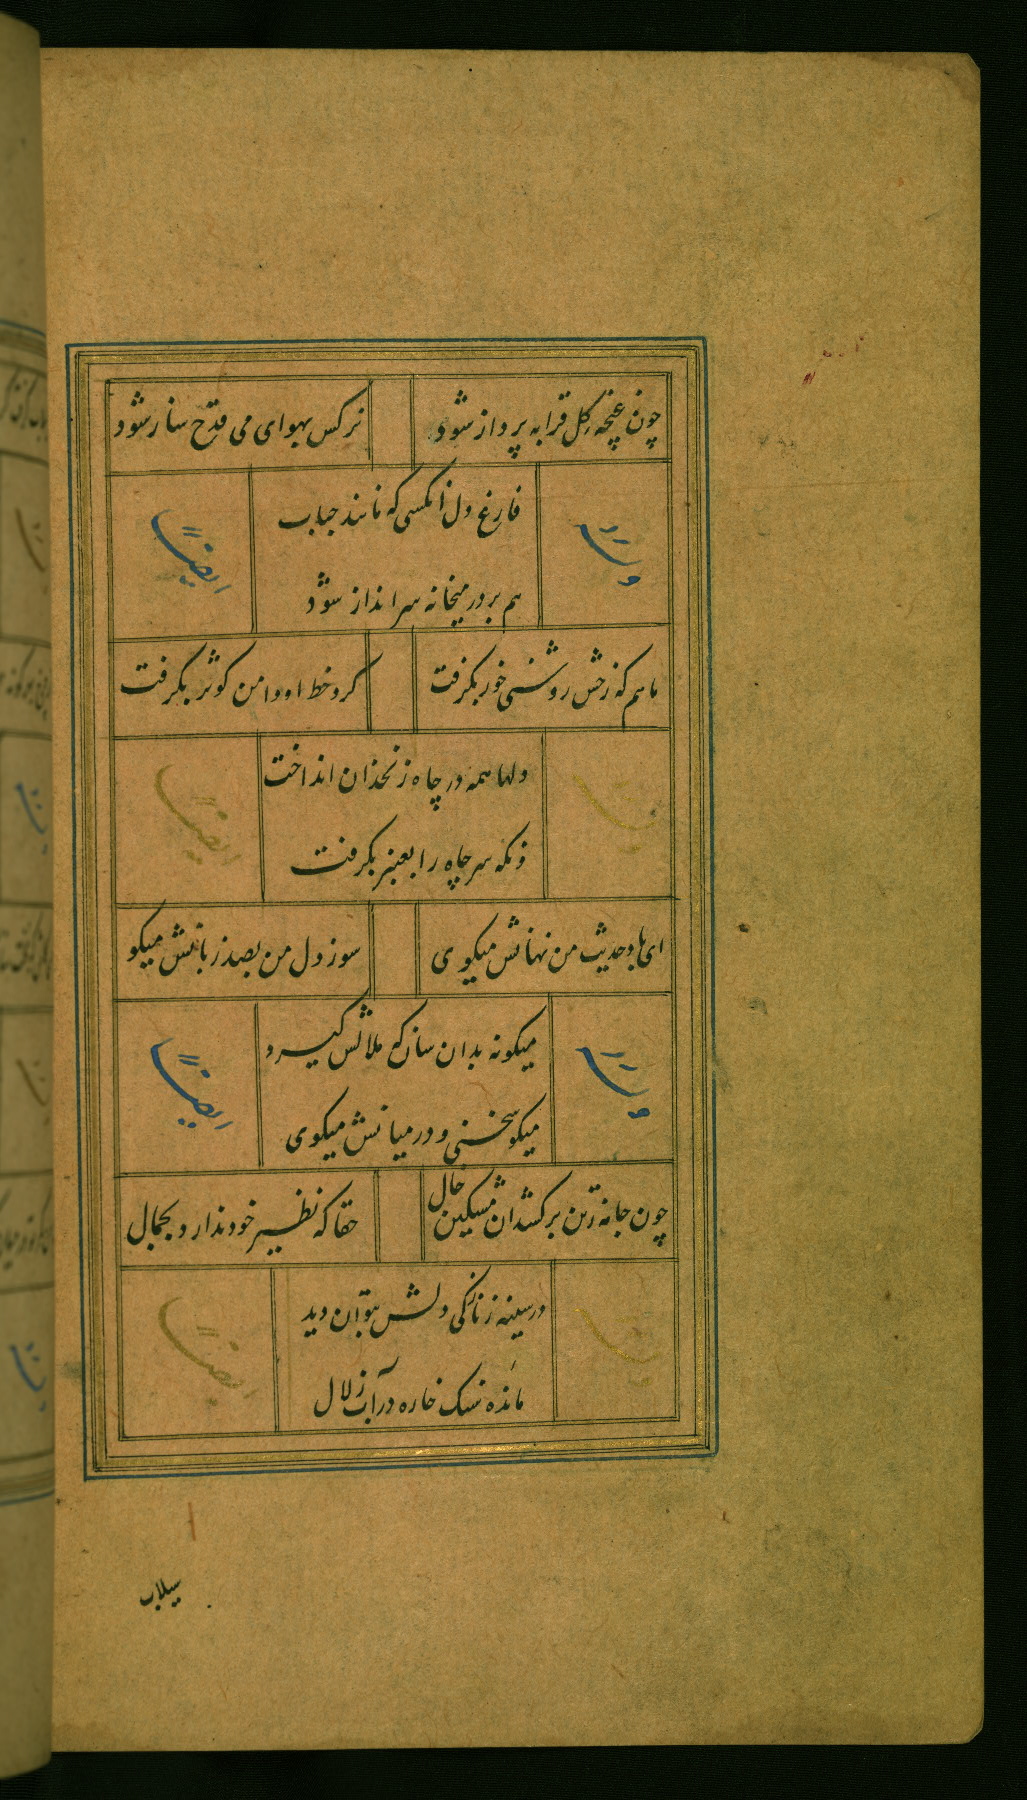 چون غنچهٔ گل قرابه پرداز شود
نرکس بهوای می قدح ساز شود
فارغ دل آنکسی که مانند حباب
وله
ایضاً
هم بر در میخانه سرانداز شود
ماهم که رخش روشنی خور بکرفت
کرد خط او دامن کوثر بکرفت
دلها همه در چاه زنخدان انداخت
ایضاً
ونکه سر چاه را بعنبر بکرفت
ای باد حدیث من نهانش میکوی
سوز دل من بصد زبانش میکو
میکو نه بدان سان که ملالش گیرد
وله
ایضاً
میکو سخنی و در میانش میکوی
چون جامه ز تن برکشد آن مشکین خال
حقا که نظیر خود ندارد بجمال
در سینه ز نازکی دلش بتوان دید
ایضاً
مانده سنک خاره در آب زلال
سیلاب